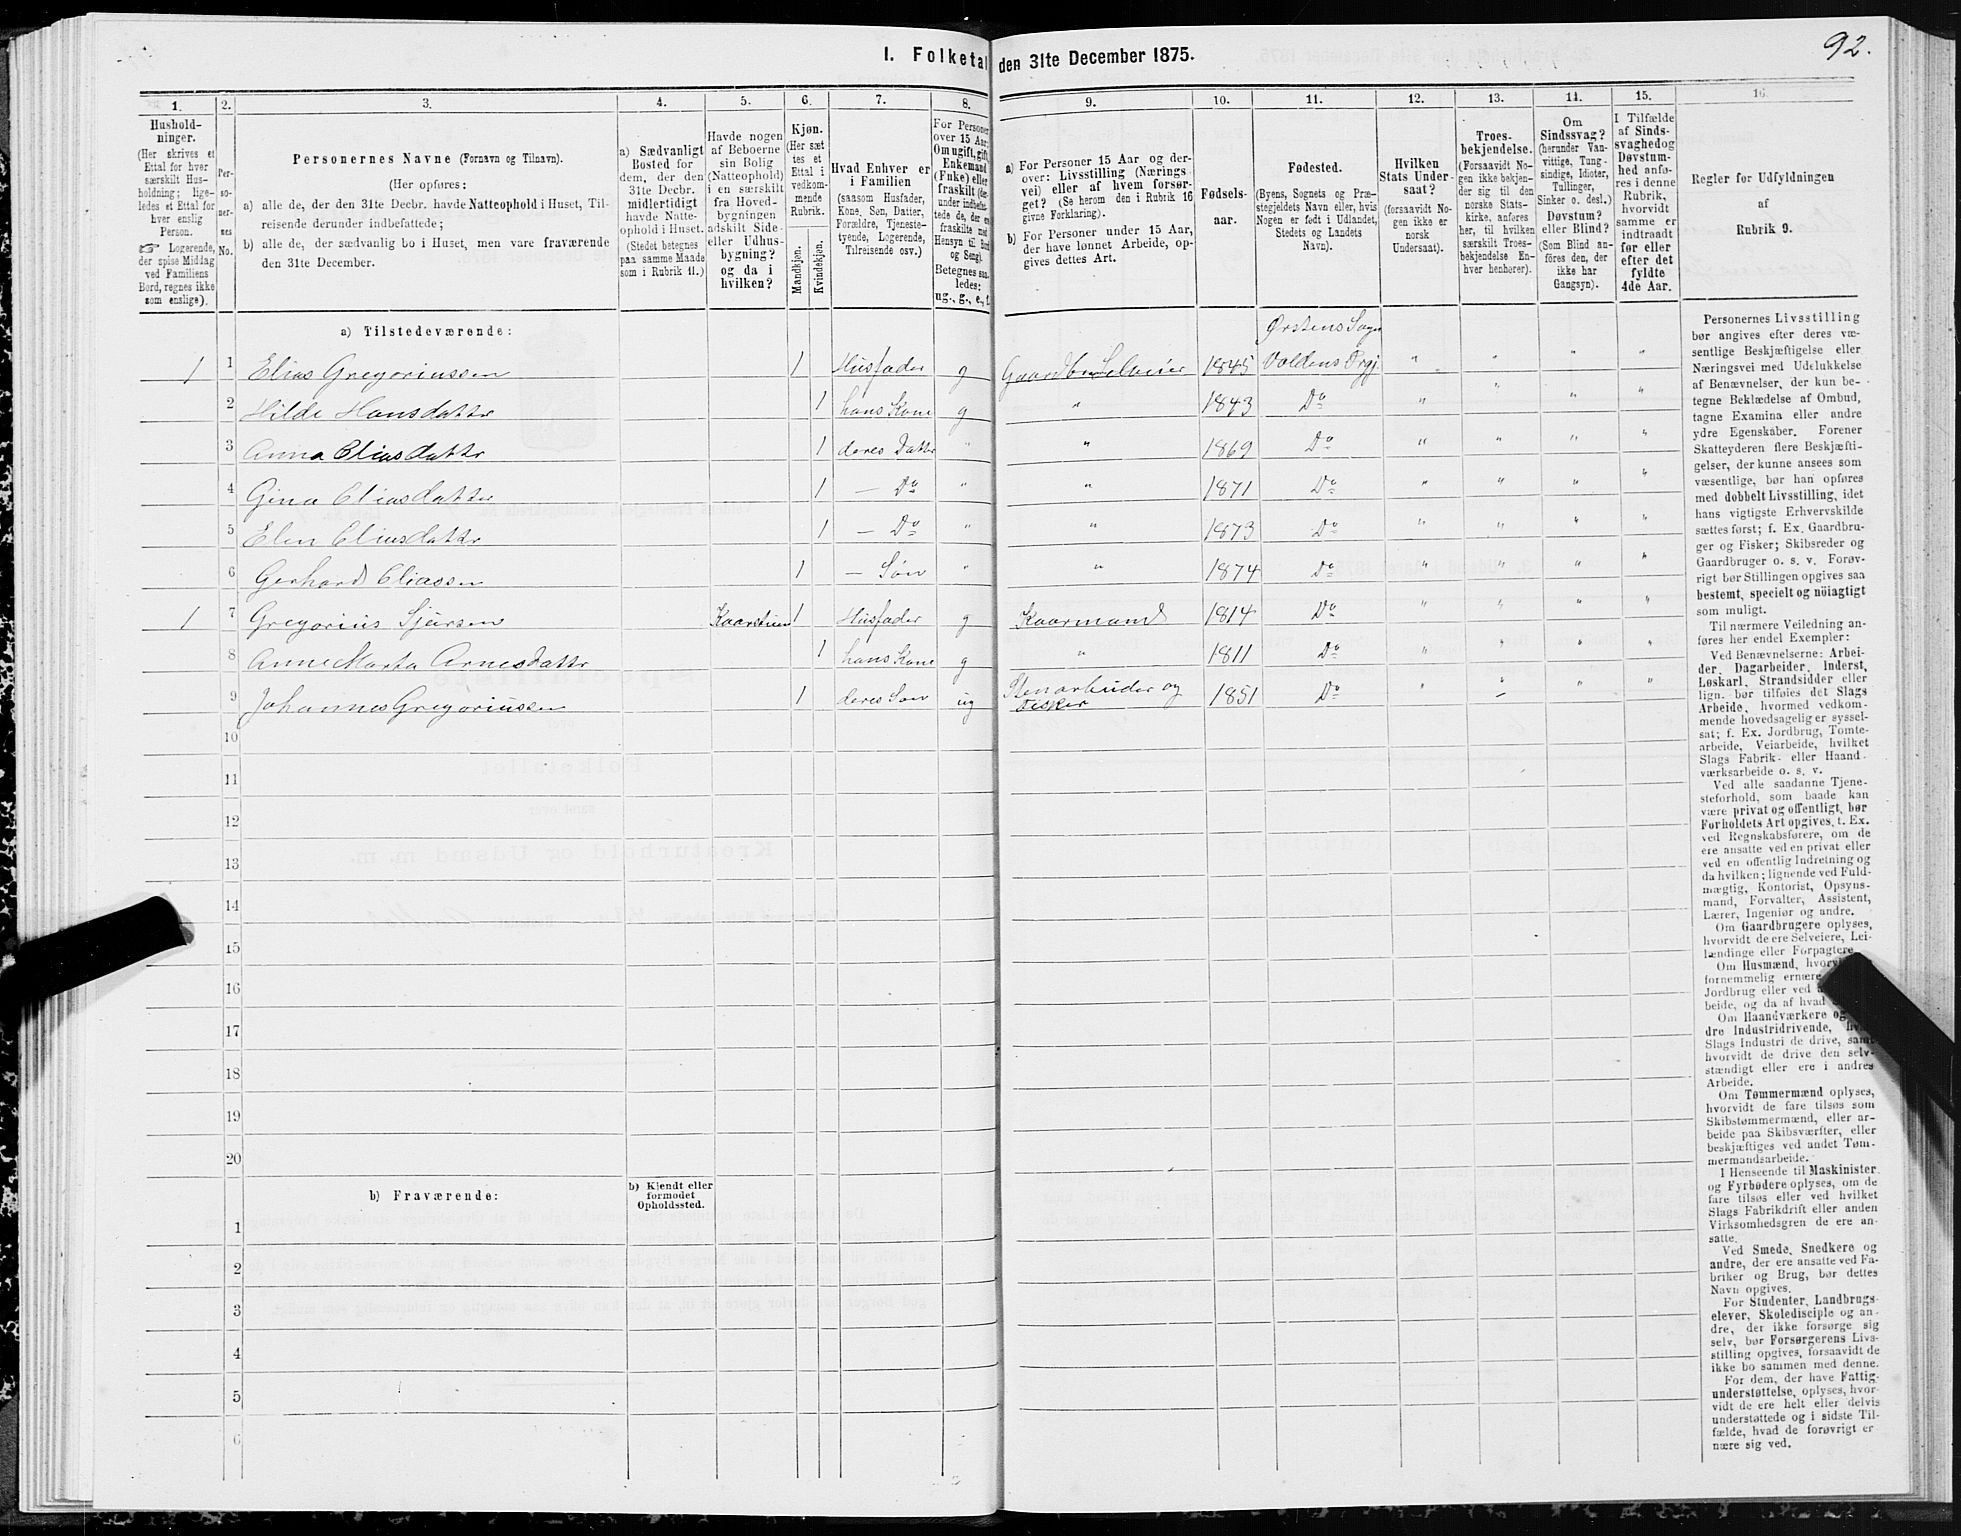 I. Folketal den 31te December 1875.
92.
1. 2. 3. 4. 5. 6. 7. 8. 9. 10. 11. 12. 13. 14. 15. 16.
Hushold-
ninger.
(Her skrives et
Ettal for hver
særskilt Hus-
holdning; lige-
ledes et Ettal for
hver enslig
Person.
☞ Logerende,
der spise Middag
ved Familiens
Bord, regnes ikke
som enslige).
Per-
so-
ner-
nes
No.
Personernes Navne (Fornavn og Tilnavn).
(Her opføres:
a) alle de, der den 31te Decbr. havde Natteophold i Huset, Til-
reisende derunder indbefattede;
b) alle de, der sædvanlig bo i Huset, men vare fraværende
den 31te December.
a) Sædvanligt
Bosted for
dem, der den
31te Decbr.
midlertidigt
havde Natte-
ophold i Huset.
(Stedet betegnes
paa samme Maade
som i Rubrik 11.)
Havde nogen
af Beboerne
sin Bolig
(Natteophold)
i en særskilt
fra Hoved-
bygningen
adskilt Side-
eller Udhus-
bygning?
og da i
hvilken?
Kjøn.
(Her sæt
tes et
Ettal i
vedkom-
mende
Rubrik.
Mandkjøn.
Kvindekjøn.
Hvad Enhver er
i Familien
(saasom Husfader,
Kone, Søn, Datter,
Forældre, Tjeneste-
tyende, Logerende,
Tilreisende osv.)
For Personer
over 15 Aar:
Om ugift, gift,
Enkemand
(Enke) eller
fraskilt (der-
under indbefat-
tede de, der ere
fraskilte med
Hensyn til Bord
og Seng).
Betegnes saa-
ledes:
ug., g., e., f.
a) For Personer 15 Aar og der-
over: Livsstilling (Nærings
vei) eller af hvem forsør-
get? (Se herom den i Rubrik 16
givne Forklaring).
b) For Personer under 15 Aar,
der have lønnet Arbeide, op-
gives dettes Art.
Fødsels-
aar.
Fødested.
(Byens, Sognets og Præ-
stegjeldets Navn eller, hvis
Nogen er født i Udlandet,
Stedets og Landets
Navn).
Hvilken
Stats Under-
saat?
(forsaavidt No-
gen ikke er
norsk
Undersaat).
Troes-
bekjendelse.
(Forsaavidt No-
gen ikke bekjen-
der sig til den
norske Stats-
kirke, anføres
her, til hvilken
særskilt Troes-
bekjendelse En-
hver henhører).
Om
Sindssvag?
(herunder Van-
vittige, Tung-
sindige, Idioter,
Tullinger,
Sinker o. desl.)
Døvstum?
eller Blind?
(Som Blind an-
føres den, der
ikke har
Gangsyn).
I Tilfælde
af Sinds-
svaghed og
Døvstum-
hed anfø-
res i denne
Rubrik,
hvorvidt
samme er
indtraadt
før eller
efter det
fyldte
4de Aar.
Regler for Udfyldningen
af
Rubrik 9.
a) Tilstedeværende:
Ørstens Sogn
1 1 Elias Gregoriussen 1 Husfader g Gaardbr. Selveier 1845 Voldens Prgj. " " " "
2 Hilde Hansdatter 1 hans Kone g " 1843 Do " " " "
3 Anna Eliasdatter 1 deres Datter " " 1869 Do " " " "
4 Gina Eliasdatter 1 — Do " " 1871 Do " " " "
5 Elen Eliasdatter 1 — Do " " 1873 Do " " " "
6 Gerhard Eliassen 1 — Søn " " 1874 Do " " " "
1 7 Gregorius Sjursen Kaarstuen 1 Husfader g Kaarmand 1814 Do " " " "
8 Anne Marta Arnesdatter 1 hans Kone g " 1811 Do " " " "
9 Johannes Gregoriussen 1 deres Søn ug Stenarbeider og Fisker 1851 Do " " " "
10
11
12
13
14
15
16
17
18
19
20
b) Fraværende:
b) Kjendt eller
formodet
Opholdssted.
1
2
3
4
5
6
Personernes Livsstilling
bør angives efter deres væ-
sentlige Beskjæftigelse eller
Næringsvei med Udelukkelse
af Benævnelser, der kun be-
tegne Beklædelse af Ombud,
tagne Examina eller andre
ydre Egenskaber. Forener
Skatteyderen flere Beskjæfti-
gelser, der kunne ansees som
væsentlige, bør han opføres
med dobbelt Livsstilling, idet
hans vigtigste Erhvervskilde
sættes først; f. Ex. Gaardbru-
ger og Fisker; Skibsreder og
Gaardbruger o. s. v. Forøv-
rigt bør Stillingen opgives saa
bestemt, specielt og nöiagtigt
som muligt.
Til nærmere Veiledning an-
føres her endel Exempler:
Ved Benævnelserne: Arbei-
der, Dagarbeider, Inderst,
Løskarl, Strandsidder eller
lign. bør tilføies det Slags
Arbeide, hvormed vedkom-
mende hovedsagelig er syssel-
sat; f. Ex. Jordbrug, Tomte-
arbeide, Veiarbeide, hvilket
Slags Fabrik- eller Haand-
værksarbeide o. s. v.
Ved alle saadanne Tjene-
steforhold, som baade kan
være privat og offentligt, bør
Forholdets Art opgives, t. Ex.
ved Regnskabsførere, om de
ere ansatte ved en privat eller
ved en offentlig Indretning og
da hvilken; lignende ved Fuld-
mægtig, Kontorist, Opsyns-
mand, Forvalter, Assistent,
Lærer, Ingeniør og andre.
Om Gaardbrugere oplyses,
hvorvidt de ere Selveiere, Lei-
lændinge eller Forpagtere
Om Husmænd,
fornemmelig ernære
Jordbrug eller ved
beide, og da af hvad
Om Haandværkere og
dre Industridrivende,
Slags Industri de drive, samt
hvorvidt de drive den selv-
stændigt eller ere i andres
Arbeide.
Om Tømmermænd oplyses,
hvorvidt de fare tilsøs som
Skibstømmermænd, eller ar-
beide paa Skibsværfter, eller
beskjæftiges ved andet Tøm-
mermandsarbeide.
I Henseende til Maskinister
og Fyrbødere oplyses, om de
fare tilsøs eller ved hvilket
Slags Fabrikdrift eller anden
Virksomhedsgren de ere an-
satte.
Ved Smede, Snedkere og
andre, der ere ansatte ved Fa-
briker og Brug, bør dettes
Navn opgives.
For Studenter, Landbrugs-
elever, Skoledisciple og an-
dre, der ikke forsørge sig
selv, bør Forsørgerens Livs-
stilling opgives, forsaavidt de
ikke bo sammen med denne.
For dem, der have Fattig-
understøttelse, oplyses, hvor-
vidt de ere helt eller delvis
understøttede og i sidste Til-
fælde, hvad de forøvrigt er
nære sig ved.